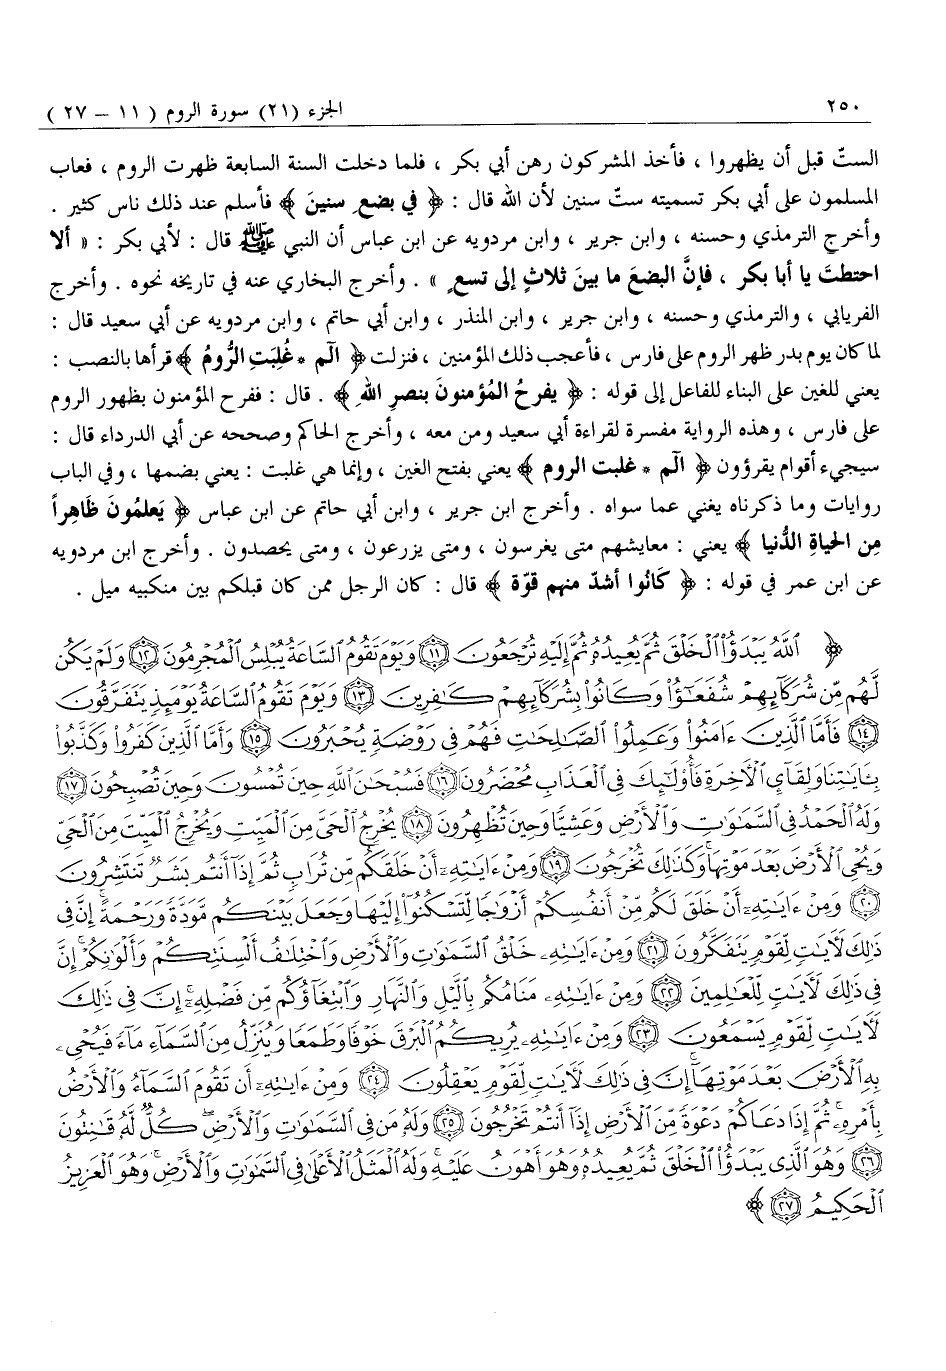 ٢٥٠
الجزء (٢١) سورة الروم ( ١١ – ٢٧ )
الستّ قبل أن يظهروا ، فأخذ المشركون رهن أبي بكر ، فلما دخلت السنة السابعة ظهرت الروم ، فعاب
المسلمون على أبي بكر تسميته ستّ سنين لأن الله قال : ﴿ في بضعِ سنينَ ﴾ فأسلم عند ذلك ناس كثير .
وأخرج الترمذي وحسنه ، وابن جرير ، وابن مردويه عن ابن عباس أن النبي ﷺ قال : لأبي بكر : « ألا
احتطتَ يا أبا بكر ، فإنَّ البضعَ ما بينَ ثلاثٍ إلى تسعٍ » . وأخرج البخاري عنه في تاريخه نحوه . وأخرج
الفريابي ، والترمذي وحسنه ، وابن جرير ، وابن المنذر ، وابن أبي حاتم ، وابن مردويه عن أبي سعيد قال :
لما كان يوم بدر ظهر الروم على فارس ، فأعجب ذلك المؤمنين ، فنزلت ﴿ الٓم * غُلبَتِ الرُّومُ ﴾ قرأها بالنصب :
يعني للغين على البناء للفاعل إلى قوله : ﴿ يفرحُ المُؤمنونَ بنصرِ اللهِ ﴾ . قال : ففرح المؤمنون بظهور الروم
على فارس ، وهذه الرواية مفسرة لقراءة أبي سعيد ومن معه ، وأخرج الحاكم وصححه عن أبي الدرداء قال :
سيجيء أقوام يقرؤون ﴿ الٓم * غلبت الروم ﴾ يعني بفتح الغين ، وإنما هي غلبت : يعني بضمها ، وفي الباب
روايات وما ذكرناه يغني عما سواه . وأخرج ابن جرير ، وابن أبي حاتم عن ابن عباس ﴿ يَعلمُونَ ظَاهِراً
مِن الحياةِ الدُّنيا ﴾ يعني : معايشهم متى يغرسون ، ومتى يزرعون ، ومتى يحصدون . وأخرج ابن مردويه
عن ابن عمر في قوله : ﴿ كَانُوا أشدّ منهم قوّة ﴾ قال : كان الرجل ممن كان قبلكم بين منكبيه ميل .
﴿ ٱللَّهُ يَبۡدَؤُاْ ٱلۡخَلۡقَ ثُمَّ يُعِيدُهُۥ ثُمَّ إِلَيۡهِ تُرۡجَعُونَ ١١ وَيَوۡمَ تَقُومُ ٱلسَّاعَةُ يُبۡلِسُ ٱلۡمُجۡرِمُونَ ١٢ وَلَمۡ يَكُن
لَّهُم مِّن شُرَكَآئِهِمۡ شُفَعَـٰٓؤُاْ وَكَانُواْ بِشُرَكَآئِهِمۡ كَـٰفِرِينَ ١٣ وَيَوۡمَ تَقُومُ ٱلسَّاعَةُ يَوۡمَئِذٍ يَتَفَرَّقُونَ
١٤ فَأَمَّا ٱلَّذِينَ ءَامَنُواْ وَعَمِلُواْ ٱلصَّـٰلِحَـٰتِ فَهُمۡ فِى رَوۡضَةٍ يُحۡبَرُونَ ١٥ وَأَمَّا ٱلَّذِينَ كَفَرُواْ وَكَذَّبُواْ
بِـَٔايَـٰتِنَا وَلِقَآيِٕ ٱلۡأَخِرَةِ فَأُوْلَـٰٓئِكَ فِى ٱلۡعَذَابِ مُحۡضَرُونَ ١٦ فَسُبۡحَـٰنَ ٱللَّهِ حِينَ تُمۡسُونَ وَحِينَ تُصۡبِحُونَ ١٧
وَلَهُ ٱلۡحَمۡدُ فِى ٱلسَّمَـٰوَٰتِ وَٱلۡأَرۡضِ وَعَشِيًّا وَحِينَ تُظۡهِرُونَ ١٨ يُخۡرِجُ ٱلۡحَىَّ مِنَ ٱلۡمَيِّتِ وَيُخۡرِجُ ٱلۡمَيِّتَ مِنَ ٱلۡحَىِّ
وَيُحۡىِ ٱلۡأَرۡضَ بَعۡدَ مَوۡتِهَا وَكَذَٰلِكَ تُخۡرَجُونَ ١٩ وَمِنۡ ءَايَـٰتِهِۦٓ أَنۡ خَلَقَكُم مِّن تُرَابٍ ثُمَّ إِذَآ أَنتُم بَشَرٌ تَنتَشِرُونَ
٢٠ وَمِنۡ ءَايَـٰتِهِۦٓ أَنۡ خَلَقَ لَكُم مِّنۡ أَنفُسِكُمۡ أَزۡوَٰجًا لِّتَسۡكُنُوٓاْ إِلَيۡهَا وَجَعَلَ بَيۡنَكُم مَّوَدَّةً وَرَحۡمَةً إِنَّ فِى
ذَٰلِكَ لَأَيَـٰتٍ لِّقَوۡمٍ يَتَفَكَّرُونَ ٢١ وَمِنۡ ءَايَـٰتِهِۦ خَلۡقُ ٱلسَّمَـٰوَٰتِ وَٱلۡأَرۡضِ وَٱخۡتِلَـٰفُ أَلۡسِنَتِكُمۡ وَأَلۡوَٰنِكُمۡ إِنَّ
فِى ذَٰلِكَ لَأَيَـٰتٍ لِّلۡعَـٰلِمِينَ ٢٢ وَمِنۡ ءَايَـٰتِهِۦ مَنَامُكُم بِٱلَّيۡلِ وَٱلنَّهَارِ وَٱبۡتِغَآؤُكُم مِّن فَضۡلِهِۦٓ إِنَّ فِى ذَٰلِكَ
لَأَيَـٰتٍ لِّقَوۡمٍ يَسۡمَعُونَ ٢٣ وَمِنۡ ءَايَـٰتِهِۦ يُرِيكُمُ ٱلۡبَرۡقَ خَوۡفًا وَطَمَعًا وَيُنَزِّلُ مِنَ ٱلسَّمَآءِ مَآءً فَيُحۡىِۦ
بِهِ ٱلۡأَرۡضَ بَعۡدَ مَوۡتِهَآ إِنَّ فِى ذَٰلِكَ لَأَيَـٰتٍ لِّقَوۡمٍ يَعۡقِلُونَ ٢٤ وَمِنۡ ءَايَـٰتِهِۦٓ أَن تَقُومَ ٱلسَّمَآءُ وَٱلۡأَرۡضُ
بِأَمۡرِهِۦ ثُمَّ إِذَا دَعَاكُمۡ دَعۡوَةً مِّنَ ٱلۡأَرۡضِ إِذَآ أَنتُمۡ تَخۡرُجُونَ ٢٥ وَلَهُۥ مَن فِى ٱلسَّمَـٰوَٰتِ وَٱلۡأَرۡضِ كُلٌّ لَّهُۥ قَـٰنِتُونَ
٢٦ وَهُوَ ٱلَّذِى يَبۡدَؤُاْ ٱلۡخَلۡقَ ثُمَّ يُعِيدُهُۥ وَهُوَ أَهۡوَنُ عَلَيۡهِ وَلَهُ ٱلۡمَثَلُ ٱلۡأَعۡلَىٰ فِى ٱلسَّمَـٰوَٰتِ وَٱلۡأَرۡضِ وَهُوَ ٱلۡعَزِيزُ
ٱلۡحَكِيمُ ٢٧ ﴾